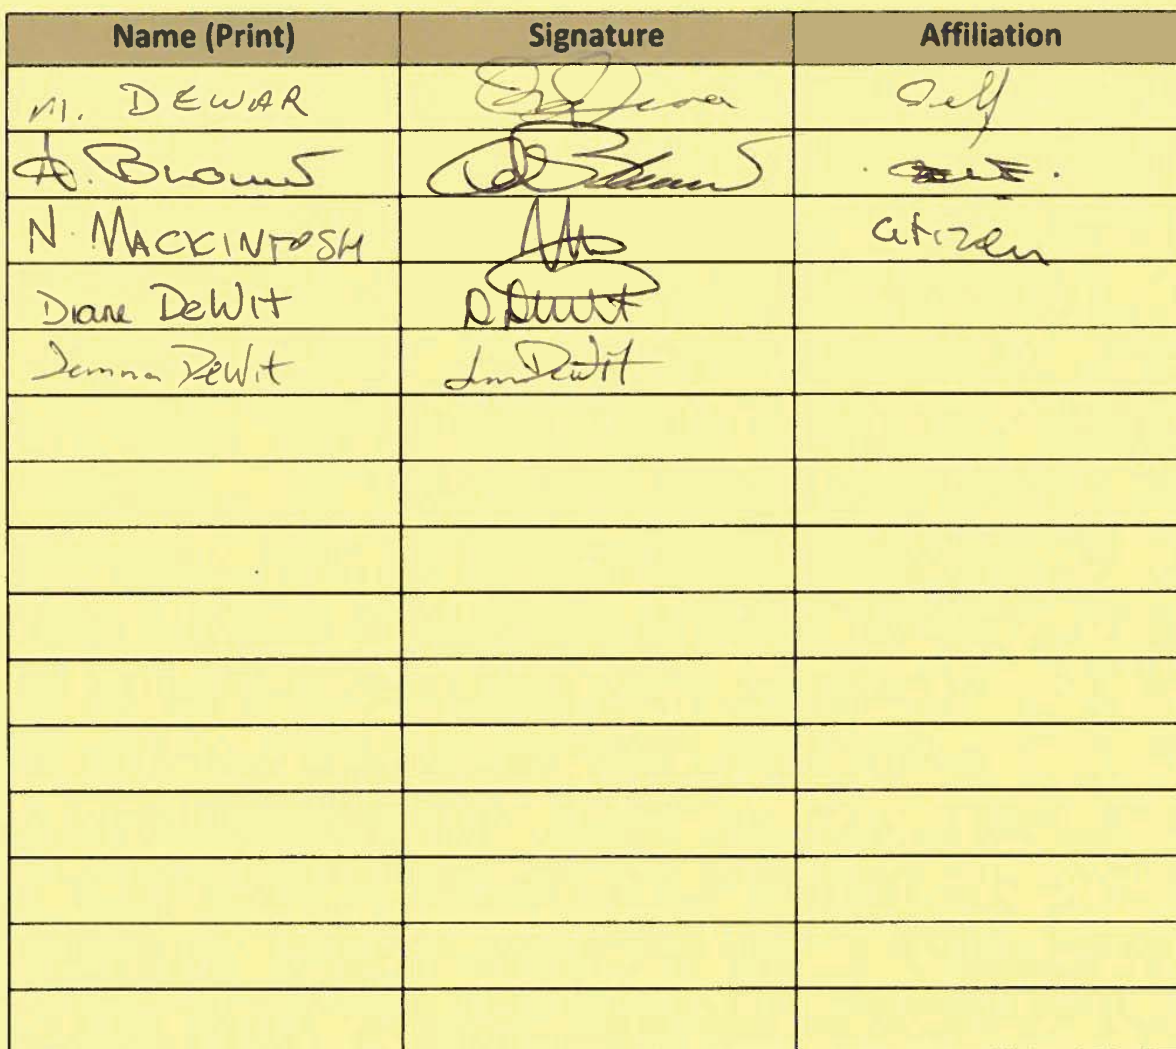 Name (Print) Signature Affiliation
M. DEWAR Self
A.
N. MACKINTOSH citizen
Diane DeWit D DeWit
DeWit DeWit